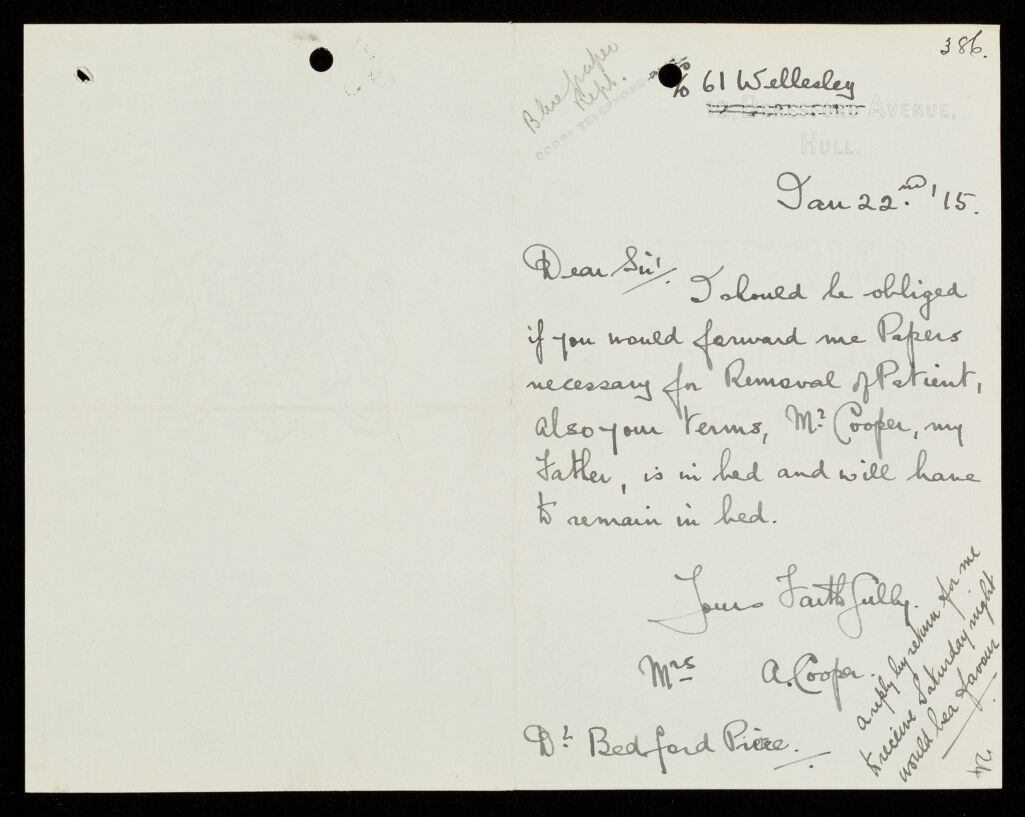 386.
Blue paper
Rept.
CORP. TELEPHONE
% 61 Wellesley
12, Beresford Avenue,
Hull.
Jan 22nd '15.
Dear Sir!
I should be obliged
if you would forward me Papers
necessary for Removal of Patient,
also your terms, Mr Cooper, my
Father, is in bed and will have
to remain in bed.
Yours Faithfully.
Mrs A. Cooper.
Dr Bedford Pierce.
a reply by return for me
to receive Saturday night
would be a favour